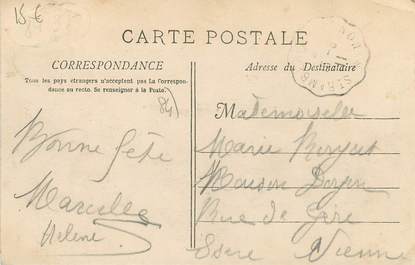 15,€
CARTE POSTALE
CORRESPONDANCE
Tous les pays étrangers n'acceptent pas La Correspon-
dance au recto. Se renseigner à la Poste.
(84)
Bonne fête
Marcelle
Helene
Adresse du Destinataire
Mademoiselle
Marie
Maison
Rue de
Vienne